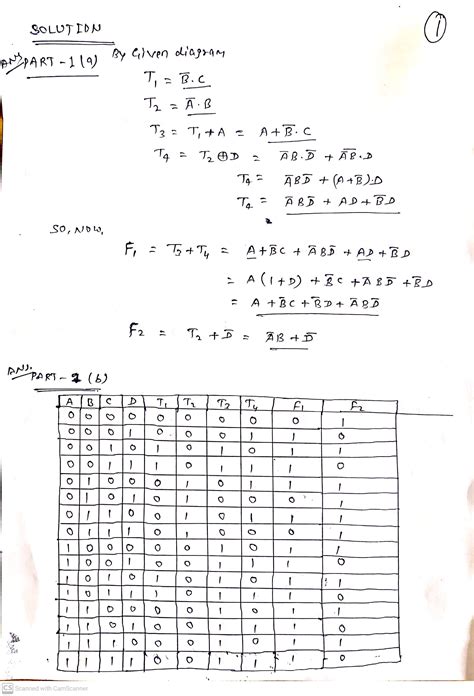 SOLUTION
1
Ans PART - 1 (a) By Given diagram
T₁ = B̅.C
T₂ = A̅.B
T₃ = T₁ + A = A + B̅.C
T₄ = T₂ ⊕ D = A̅B.D̅ + \overline{A̅B}.D
T₄ = A̅BD̅ + (A + B̅).D
T₄ = A̅BD̅ + AD + B̅D
SO, NOW,
F₁ = T₃ + T₄ = A + B̅C + A̅BD̅ + AD + B̅D
= A(1+D) + B̅C + A̅BD̅ + B̅D
= A + B̅C + B̅D + A̅BD̅
F₂ = T₂ + D̅ = A̅B + D̅
Ans. PART - 1 (b)
A B C D T₁ T₂ T₃ T₄ F₁ F₂
0 0 0 0 0 0 0 0 0 1
0 0 0 1 0 0 0 1 1 0
0 0 1 0 1 0 1 0 1 1
0 0 1 1 1 0 1 1 1 0
0 1 0 0 0 1 0 1 1 1
0 1 0 1 0 1 0 0 0 1
0 1 1 0 0 1 0 1 1 1
0 1 1 1 0 1 0 0 0 1
1 0 0 0 0 0 1 0 1 1
1 0 0 1 0 0 1 1 1 0
1 0 1 0 1 0 1 0 1 1
1 0 1 1 1 0 1 1 1
1 1 0 0 0 0 1 0 1 1
1 1 0 1 0 0 1 1 1 0
1 1 1 0 0 0 1 0 1 1
1 1 1 1 0 0 1 1 1 0
CS Scanned with CamScanner